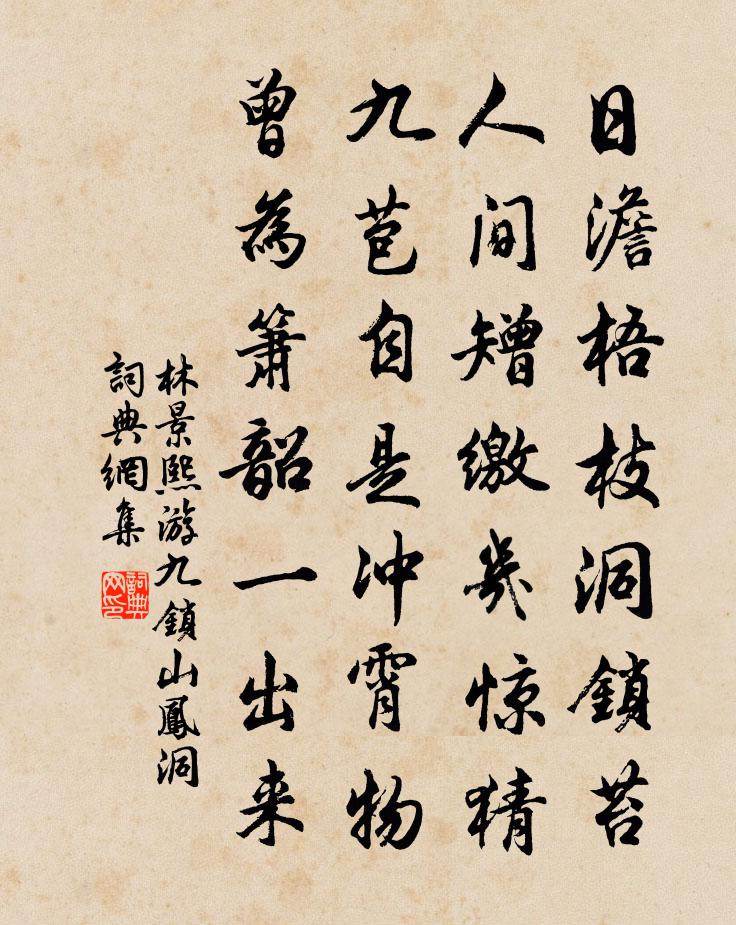 日澹梧枝洞鎖苔
人間矰繳幾惊猜
九苞自是冲霄物
曾為簫韶一出来
林景熙游九鎖山鳳洞
詞典網集
詞典
网印